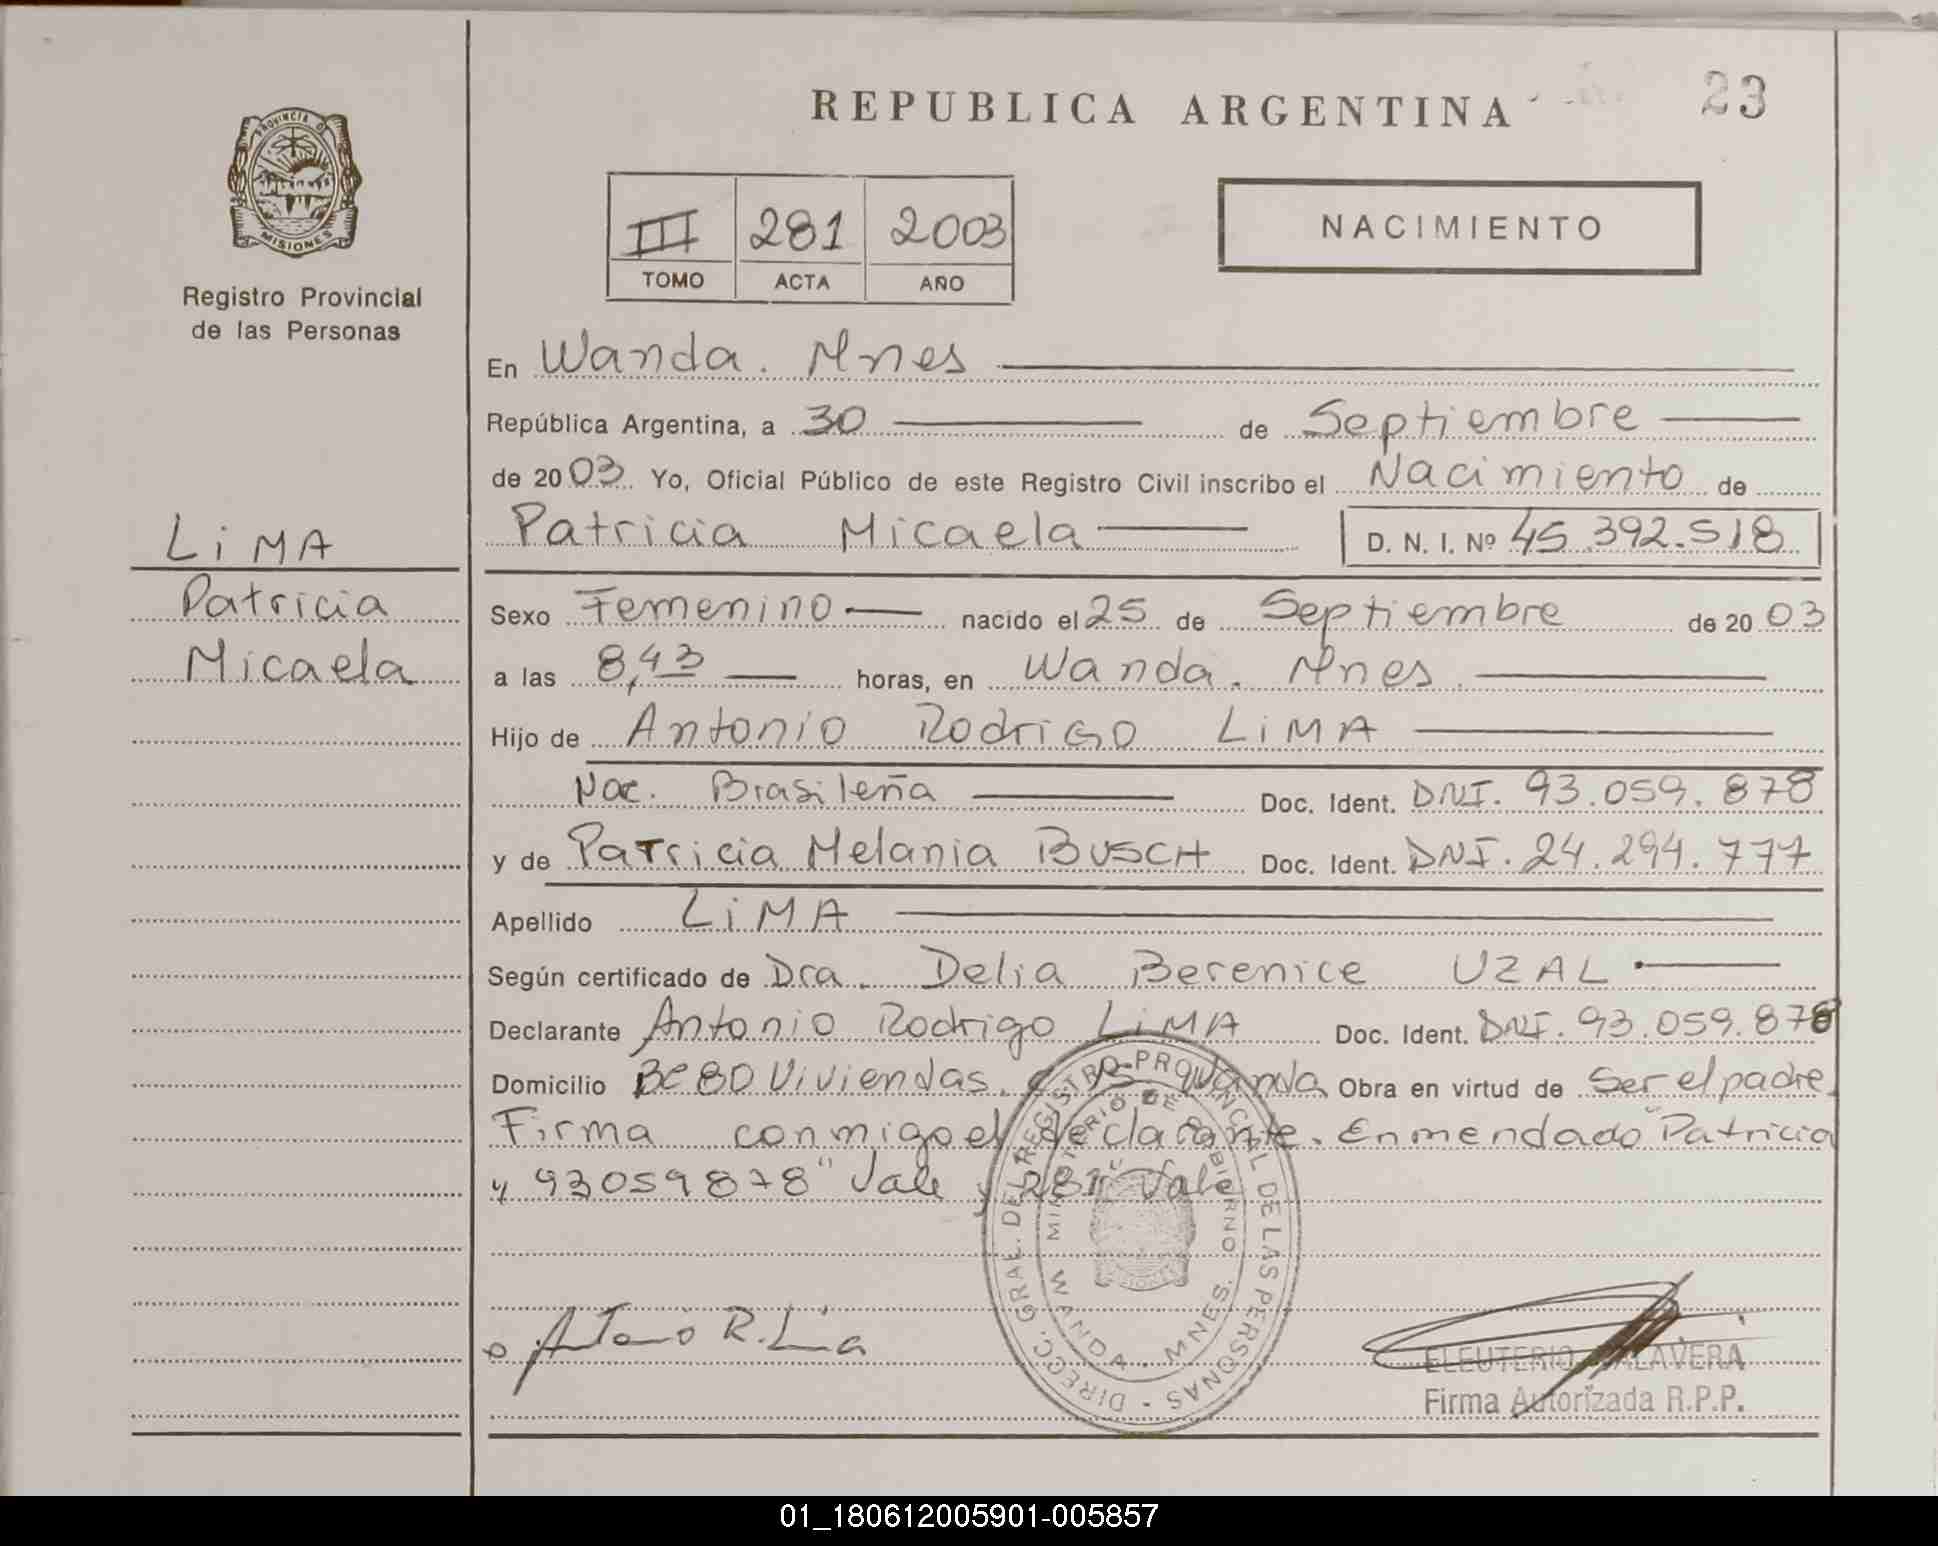 23
REPUBLICA ARGENTINA
PROVINCIA DE
MISIONES
Registro Provincial
de las Personas
III 281 2003
TOMO ACTA AÑO
NACIMIENTO
En Wanda. Mnes
República Argentina, a 30 de Septiembre
de 2003. Yo, Oficial Público de este Registro Civil inscribo el Nacimiento de
Patricia Micaela D. N. I. Nº 45.392.518
LiMA
Patricia
Micaela
Sexo Femenino nacido el 25 de Septiembre de 2003
a las 8,43 horas, en Wanda. Mnes
Hijo de Antonio Rodrigo LiMA
Nac. Brasileña Doc. Ident. DNI. 93.059.878
y de Patricia Melania BUSCH Doc. Ident. DNI. 24.294.777
Apellido LiMA
Según certificado de Dra. Delia Berenice UZAL
Declarante Antonio Rodrigo LiMA Doc. Ident. DNI. 93.059.878
Domicilio Bº 80 Viviendas. Wanda Obra en virtud de Ser el padre.
Firma conmigo el declarante. Enmendado "Patricia
y 93059878" Vale y "281" Vale
DIRECC. GRAL. DEL REGISTRO PROVINCIAL DE LAS PERSONAS -
MINISTERIO DE GOBIERNO
WANDA - MNES.
Antonio R. Lima
ELEUTERIO TALAVERA
Firma Autorizada R.P.P.
01_180612005901-005857